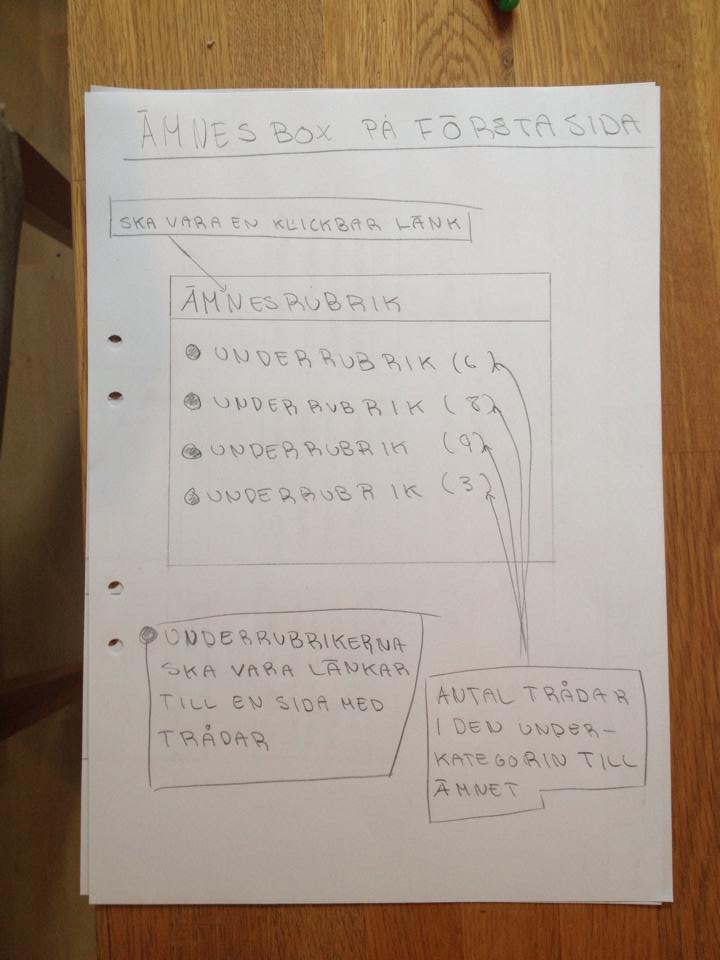 ÄMNESBOX PÅ FÖRSTASIDA
SKA VARA EN KLICKBAR LÄNK
ÄMNESRUBRIK
UNDERRUBRIK (6)
UNDERRUBRIK (8)
UNDERRUBRIK (9)
UNDERRUBRIK (3)
UNDERRUBRIKERNA
SKA VARA LÄNKAR
TILL EN SIDA MED
TRÅDAR
ANTAL TRÅDAR
I DEN UNDER-
KATEGORIN TILL
ÄMNET